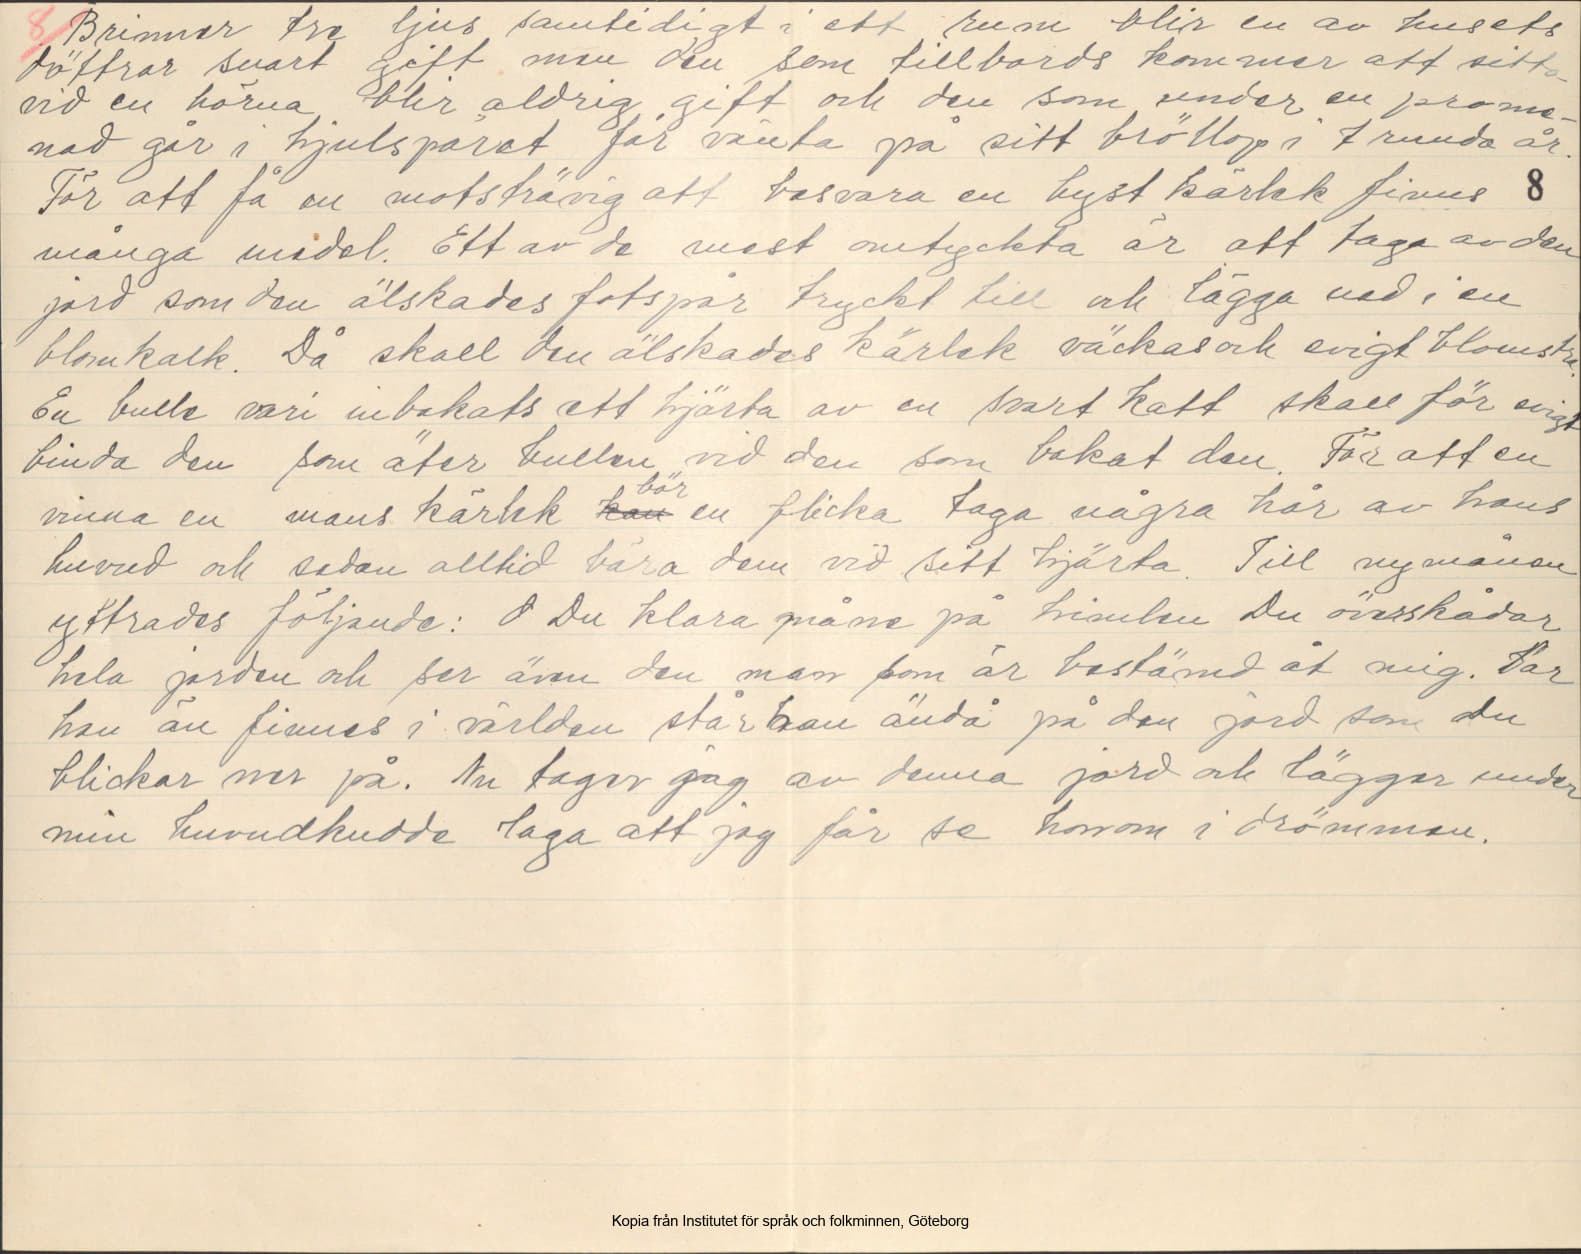 8. Brinner tre ljus samtidigt i ett rum blir en av husets
döttrar snart gift men den som tillbords kommer att sitta
vid en hörna blir aldrig gift och den som under en prome-
nad går i hjulspåret får vänta på sitt bröllop i 7 runda år.
För att få en motsträvig att besvara en hyst kärlek finns 8
många medel. Ett av de mest omtyckta är att taga av den
jord som den älskades fotspår tryckt till och lägga ned i en
blomkalk. Då skall den älskades kärlek väckas och evigt blomstra.
En bulle vari inbakats ett hjärta av en svart katt skall för evigt
binda den som äter bullen vid den som bakat den. För att en
vinna en mans kärlek kan bör en flicka taga några hår av hans
huvud och sedan alltid bära dem vid sitt hjärta. Till nymånen
yttrades följande: O Du klara måne på himlen Du överskådar
hela jorden och ser även den man som är bestämd åt mig. Var
han än finnes i världen står han ändå på den jord som du
blickar ner på. Nu tager jag av denna jord och lägger under
min huvudkudde laga att jag får se honom i drömmen.
Kopia från Institutet för språk och folkminnen, Göteborg